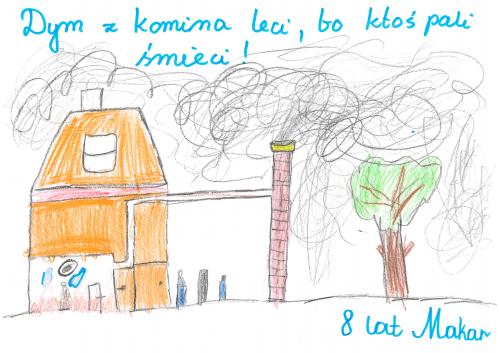 Dym z komina leci, bo ktoś pali
śmieci!
8 lat Makar